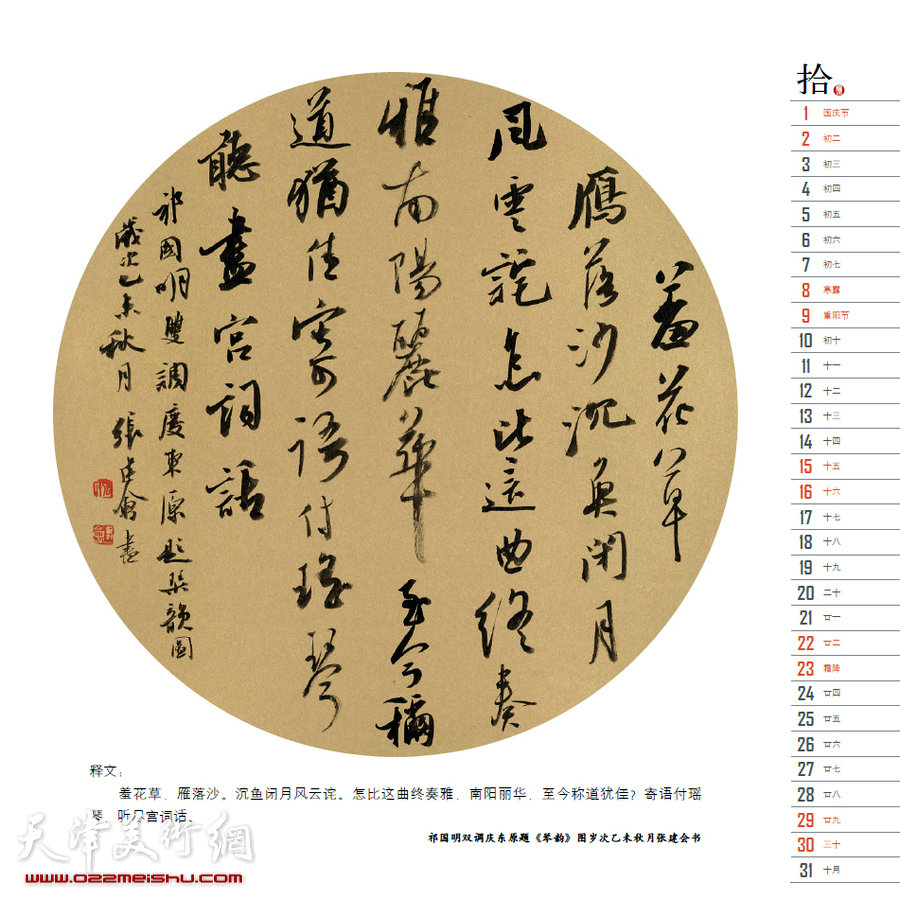 羞花草
雁落沙沉魚閉月
風雲詫怎比這曲終奏
雅南陽麗華至今稱
道猶佳寄語付瑤琴
聽盡宮詞話
祁國明雙調慶東原題琴韻圖
歲次乙未秋月張建會書
释文：
羞花草，雁落沙。沉鱼闭月风云诧。怎比这曲终奏雅，南阳丽华，至今称道犹佳？寄语付瑶
琴，听尽宫词话。
祁国明双调庆东原题《琴韵》图岁次乙未秋月张建会书
天津美術網
www.022meishu.com
拾
1 国庆节
2 初二
3 初三
4 初四
5 初五
6 初六
7 初七
8 寒露
9 重阳节
10 初十
11 十一
12 十二
13 十三
14 十四
15 十五
16 十六
17 十七
18 十八
19 十九
20 二十
21 廿一
22 廿二
23 霜降
24 廿四
25 廿五
26 廿六
27 廿七
28 廿八
29 廿九
30 三十
31 十月